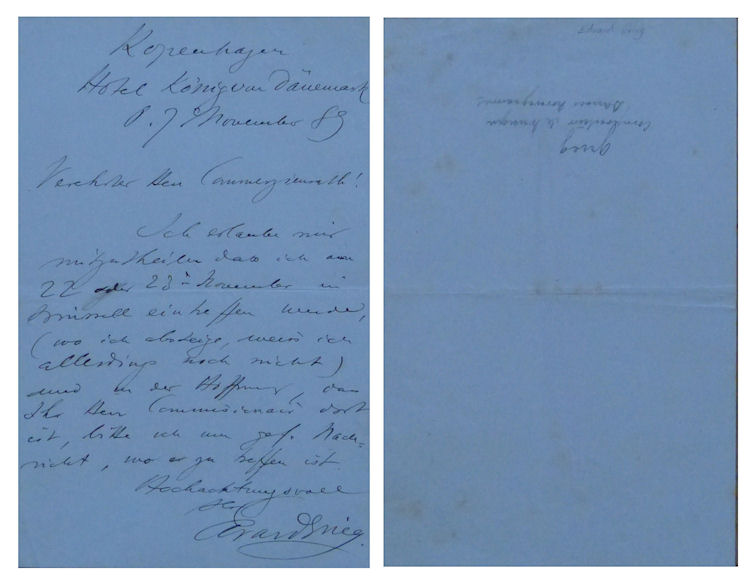 Kopenhagen
Hotel König von Dänemark
d. 7 November 89
Verehrter Herr Commerzienrath!
Ich erlaube mir
mitzutheilen dass ich am
22 oder 23ⁿ November in
Brüssel eintreffen werde,
(wo ich absteige, weiss ich
allerdings noch nicht)
und in der Hoffnung, dass
Ihr Herr Commissionair dort
ist, bitte ich um gef. Nach=
richt, wo er zu treffen ist
Hochachtungsvoll
Edvard Grieg.
Grieg